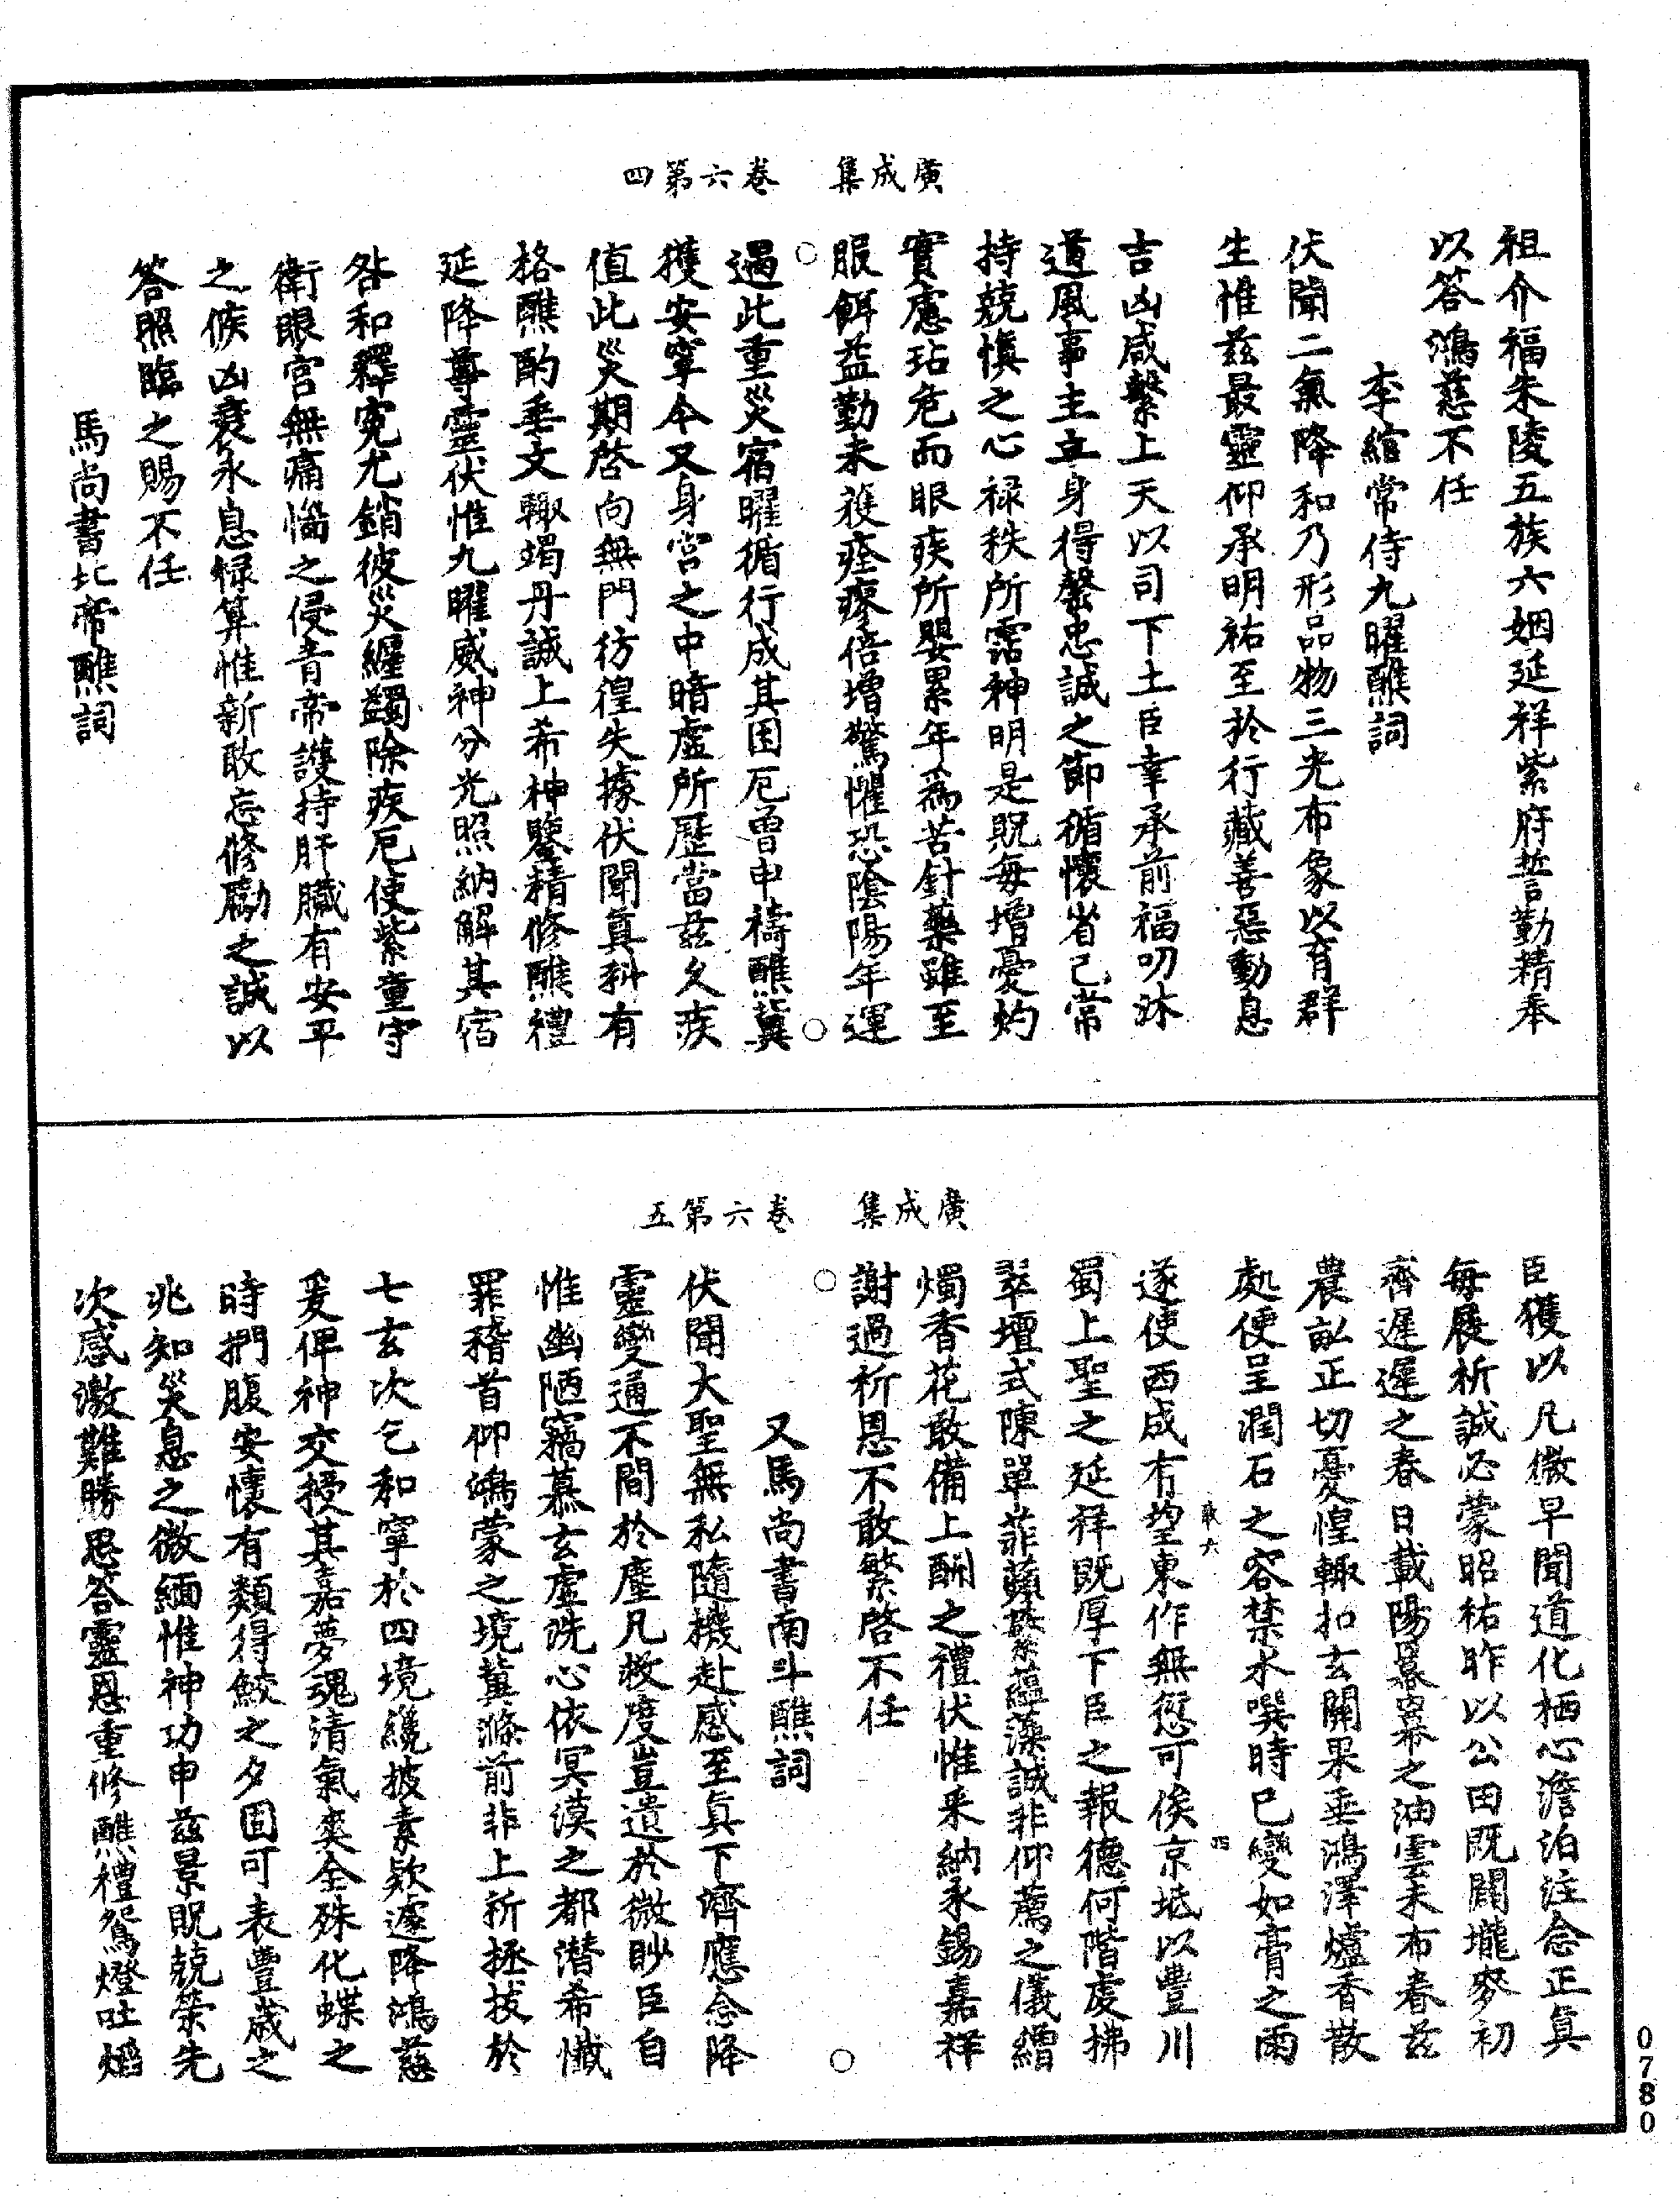 廣成集　卷六第四
祖介福朱陵五族六姻延祥紫府誓勤精奉
以答鴻慈不任
李綰常侍九曜醮詞
伏聞二氣降和乃形品物三光布象以育群
生惟茲最靈仰承明祐至於行藏善惡動息
吉凶咸繫上天以司下土臣幸承前福叨沐
道風事主立身得罄忠誠之節循懷省己常
持兢慎之心祿秩所霑神明是貺每增憂灼
實慮玷危而眼疾所嬰累年為苦針藥雖至
服餌益勤未獲痊瘳倍增驚懼恐陰陽年運
過此重災宿曜循行成其困厄曾申禱醮冀
獲安寧今又身宮之中暗虛所歷當茲久疾
值此災期啓向無門彷徨失據伏聞真科有
格醮酌垂文輙竭丹誠上希神鑒精修醮禮
延降尊靈伏惟九曜威神分光照納解其宿
咎和釋冤尤銷彼災纏蠲除疾厄使紫童守
衛眼宮無痛惱之侵青帝護持肝臟有安平
之候凶衰永息祿筭惟新敢忘修勵之誠以
答照臨之賜不任
馬尚書北帝醮詞
廣成集　卷六第五
臣獲以凡微早聞道化栖心澹泊注念正真
每展祈誠必蒙昭祐昨以公田既闢壠麥初
齊遲遲之春日載陽羃羃之油雲未布眷茲
農畝正切憂惶輙扣玄關果垂鴻澤爐香散
處便呈潤石之容禁水噀時已變如膏之雨
遂使西成有望東作無愆可俟京坻以豐川
蜀上聖之延祥既厚下臣之報德何階虔拂
翠壇式陳單菲蘋蘩蘊藻誠非仰薦之儀繒
燭香花敢備上酬之禮伏惟釆納永錫嘉祥
謝過祈恩不敢繁啓不任
又馬尚書南斗醮詞
伏聞大聖無私隨機赴感至真下濟應念降
靈變通不間於塵凡救度豈遺於微眇臣自
惟幽陋竊慕玄虛洗心依冥漠之都潛希懺
罪稽首仰鴻蒙之境冀滌前非上祈拯拔於
七玄次乞和寧於四境纔披素欵遽降鴻慈
爰俾神交授其嘉夢魂清氣爽全殊化蝶之
時捫腹安懷有類得鮫之夕固可表豐歲之
兆知災息之微緬惟神功申茲景貺兢榮先
次感激難勝思答靈恩重修醮禮鴛燈吐熖
敢六
四
0780